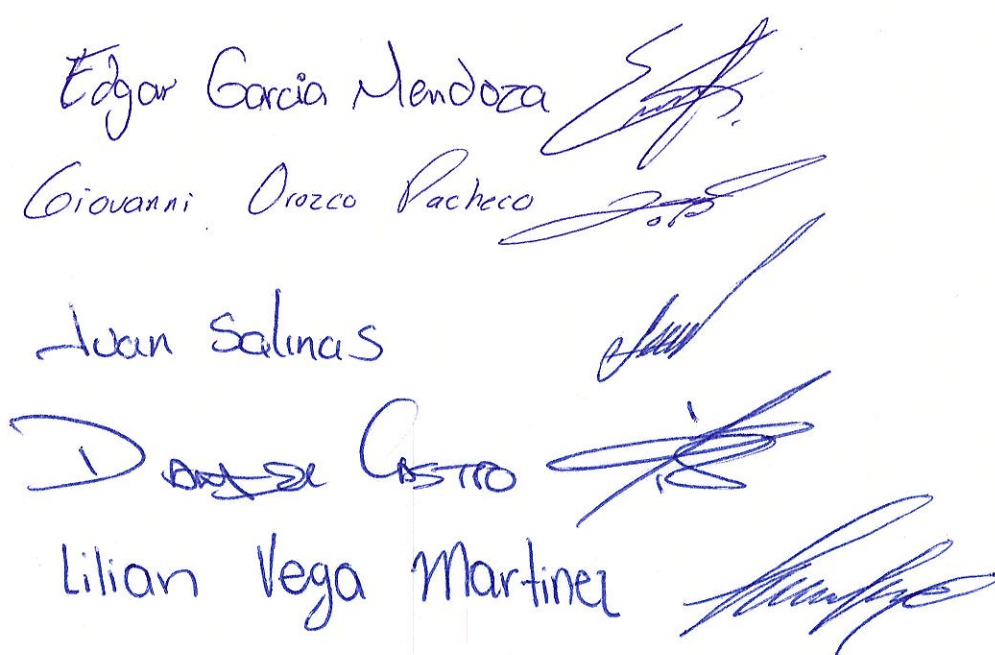 Edgar Garcia Mendoza
Giovanni Orozco Pacheco
Juan Salinas
Daniel Castro
Lilian Vega Martinez